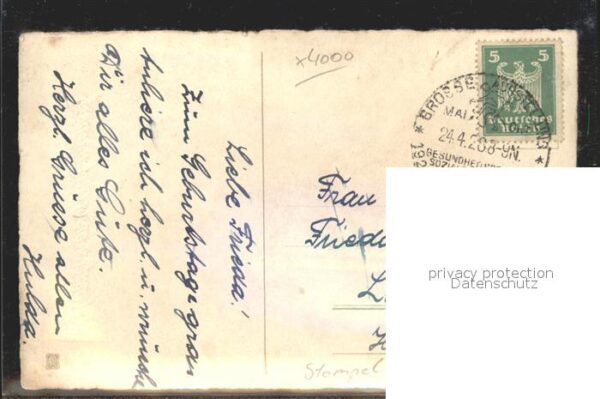 Liebe Frieda!
Zum Geburtstage gra=
tuliere ich herzl. u. wünsche
Dir alles Gute.
Herzl. Grüsse allen
Hulda.
x4000
5 5
Deutsches
GROSSE
MAI
24.4.26 8-9N.
GESUNDHE
SOZIA
Frau
Frieda
L
H
Stempel
privacy protection
Datenschutz